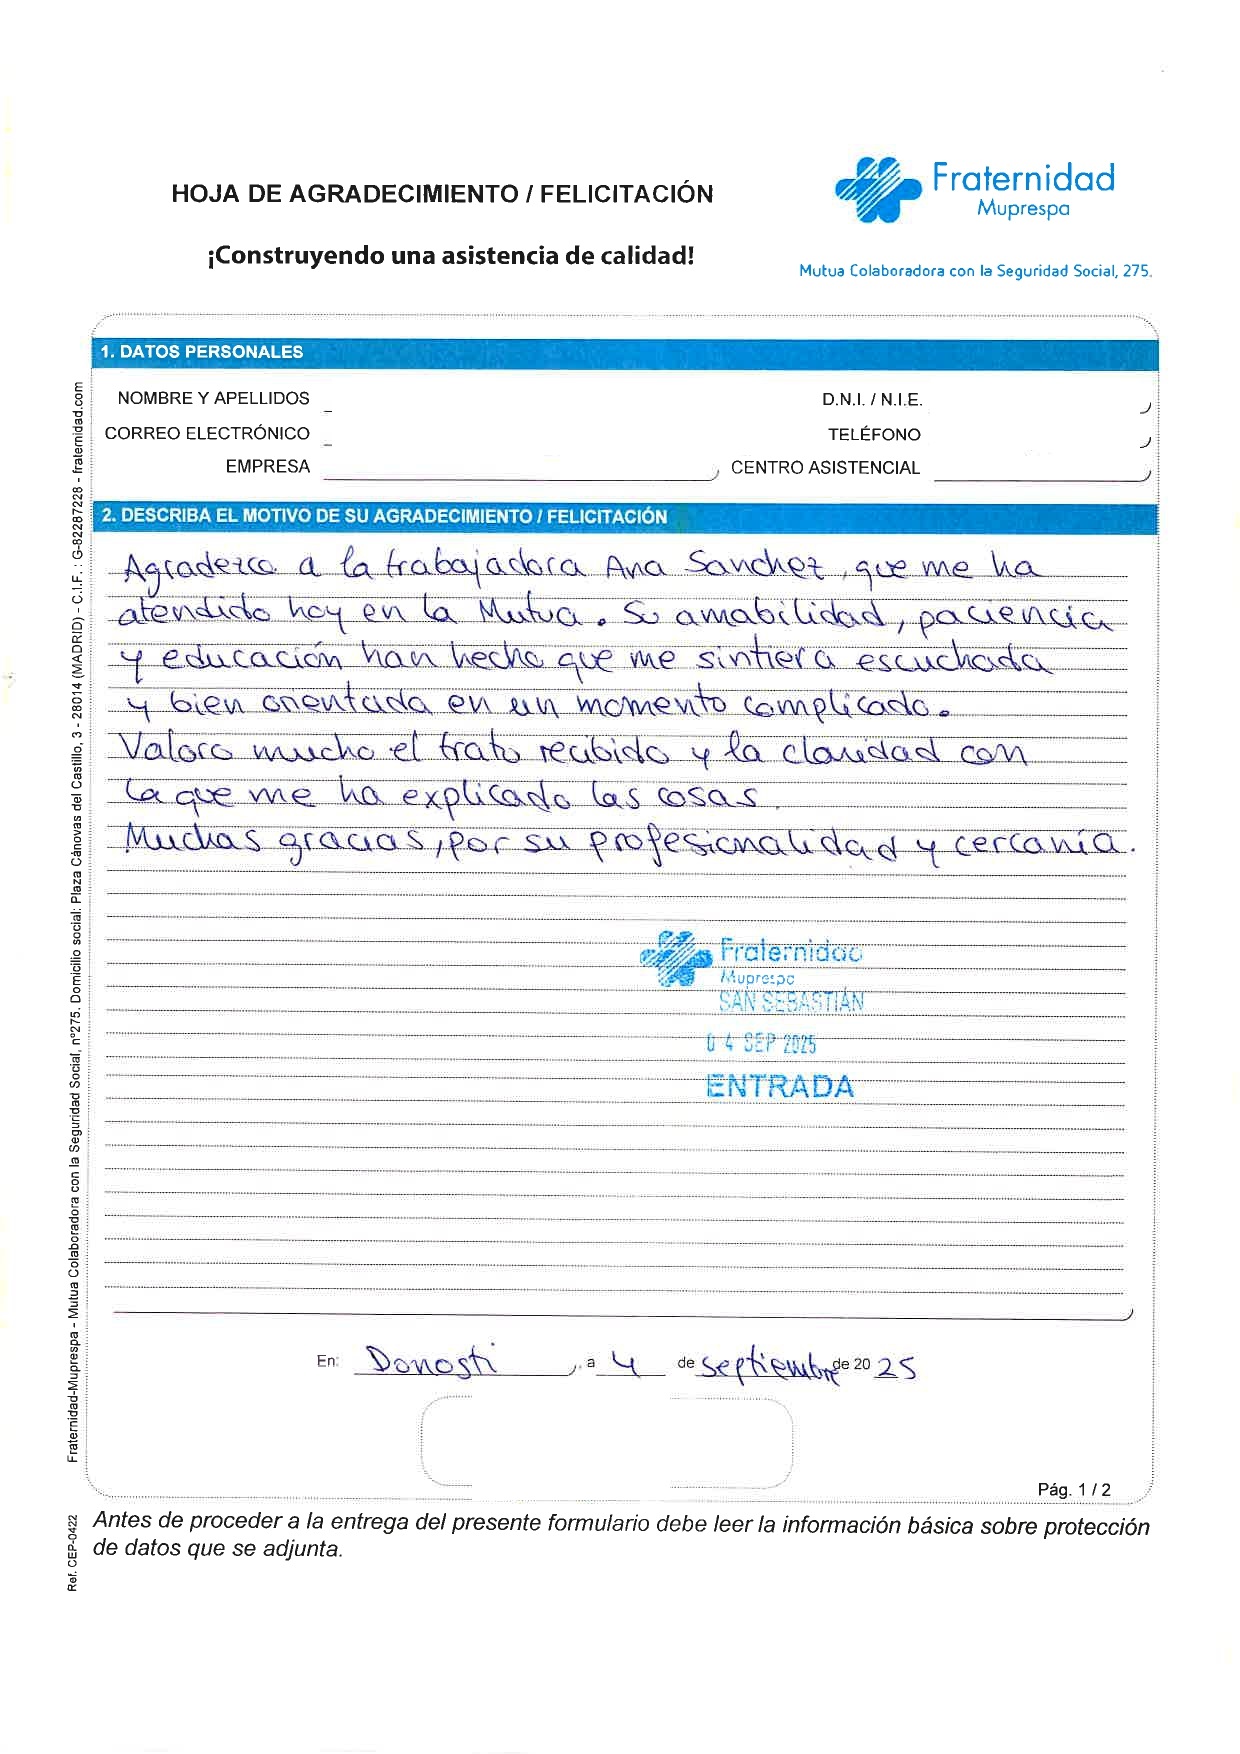 HOJA DE AGRADECIMIENTO / FELICITACIÓN
¡Construyendo una asistencia de calidad!
Fraternidad
Muprespa
Mutua Colaboradora con la Seguridad Social, 275.
1. DATOS PERSONALES
NOMBRE Y APELLIDOS
D.N.I. / N.I.E.
CORREO ELECTRÓNICO
TELÉFONO
EMPRESA
CENTRO ASISTENCIAL
2. DESCRIBA EL MOTIVO DE SU AGRADECIMIENTO / FELICITACIÓN
Agradezco a la trabajadora Ana Sanchez, que me ha
atendido hoy en la Mutua. Su amabilidad, paciencia
y educación han hecho que me sintiera escuchada
y bien orientada en un momento complicado.
Valoro mucho el trato recibido y la claridad con
la que me ha explicado las cosas.
Muchas gracias, por su profesionalidad y cercanía.
Fraternidad
Muprespa
SAN SEBASTIÁN
04 SEP 2025
ENTRADA
En: Donosti, a 4 de septiembre de 2025
Pág. 1 / 2
Antes de proceder a la entrega del presente formulario debe leer la información básica sobre protección
de datos que se adjunta.
Fraternidad-Muprespa - Mutua Colaboradora con la Seguridad Social, nº275. Domicilio social: Plaza Cánovas del Castillo, 3 - 28014 (MADRID) - C.I.F. : G-82287228 - fraternidad.com
Ref. CEP-0422